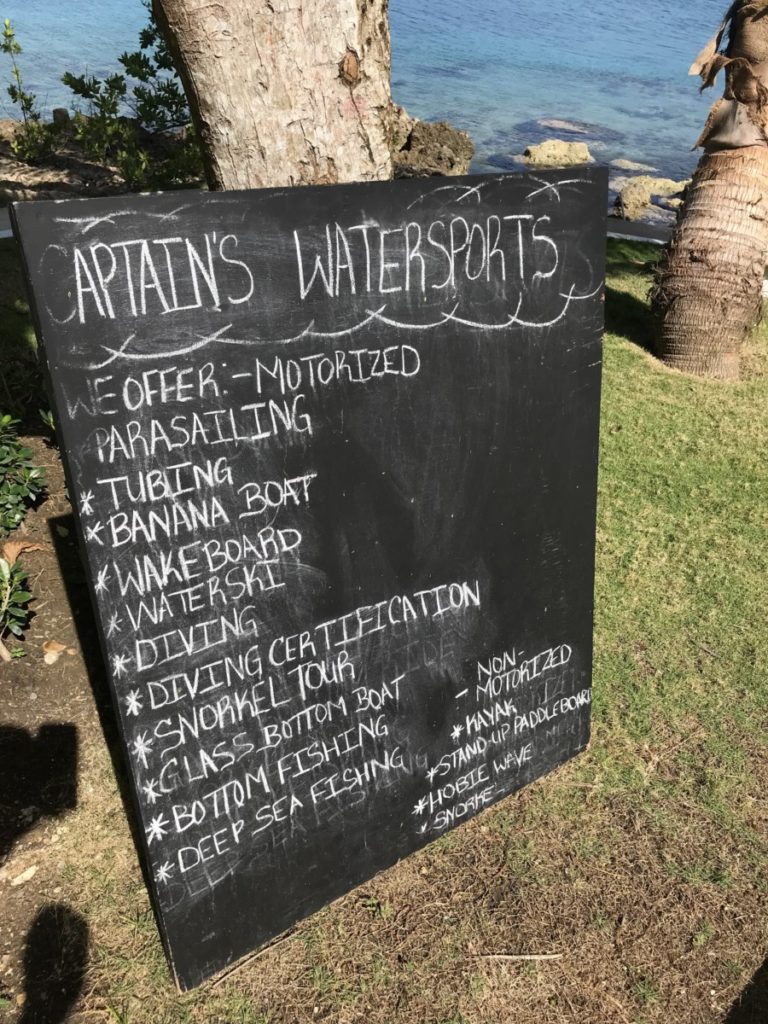 CAPTAIN'S WATERSPORTS
WE OFFER:- MOTORIZED
PARASAILING
* TUBING
* BANANA BOAT
* WAKEBOARD
* WATERSKI
* DIVING
* DIVING CERTIFICATION
* SNORKEL TOUR
* GLASS BOTTOM BOAT
* BOTTOM FISHING
* DEEP SEA FISHING
NON-
- MOTORIZED
* KAYAK
* STAND-UP PADDLEBOARD
* HOBIE WAVE